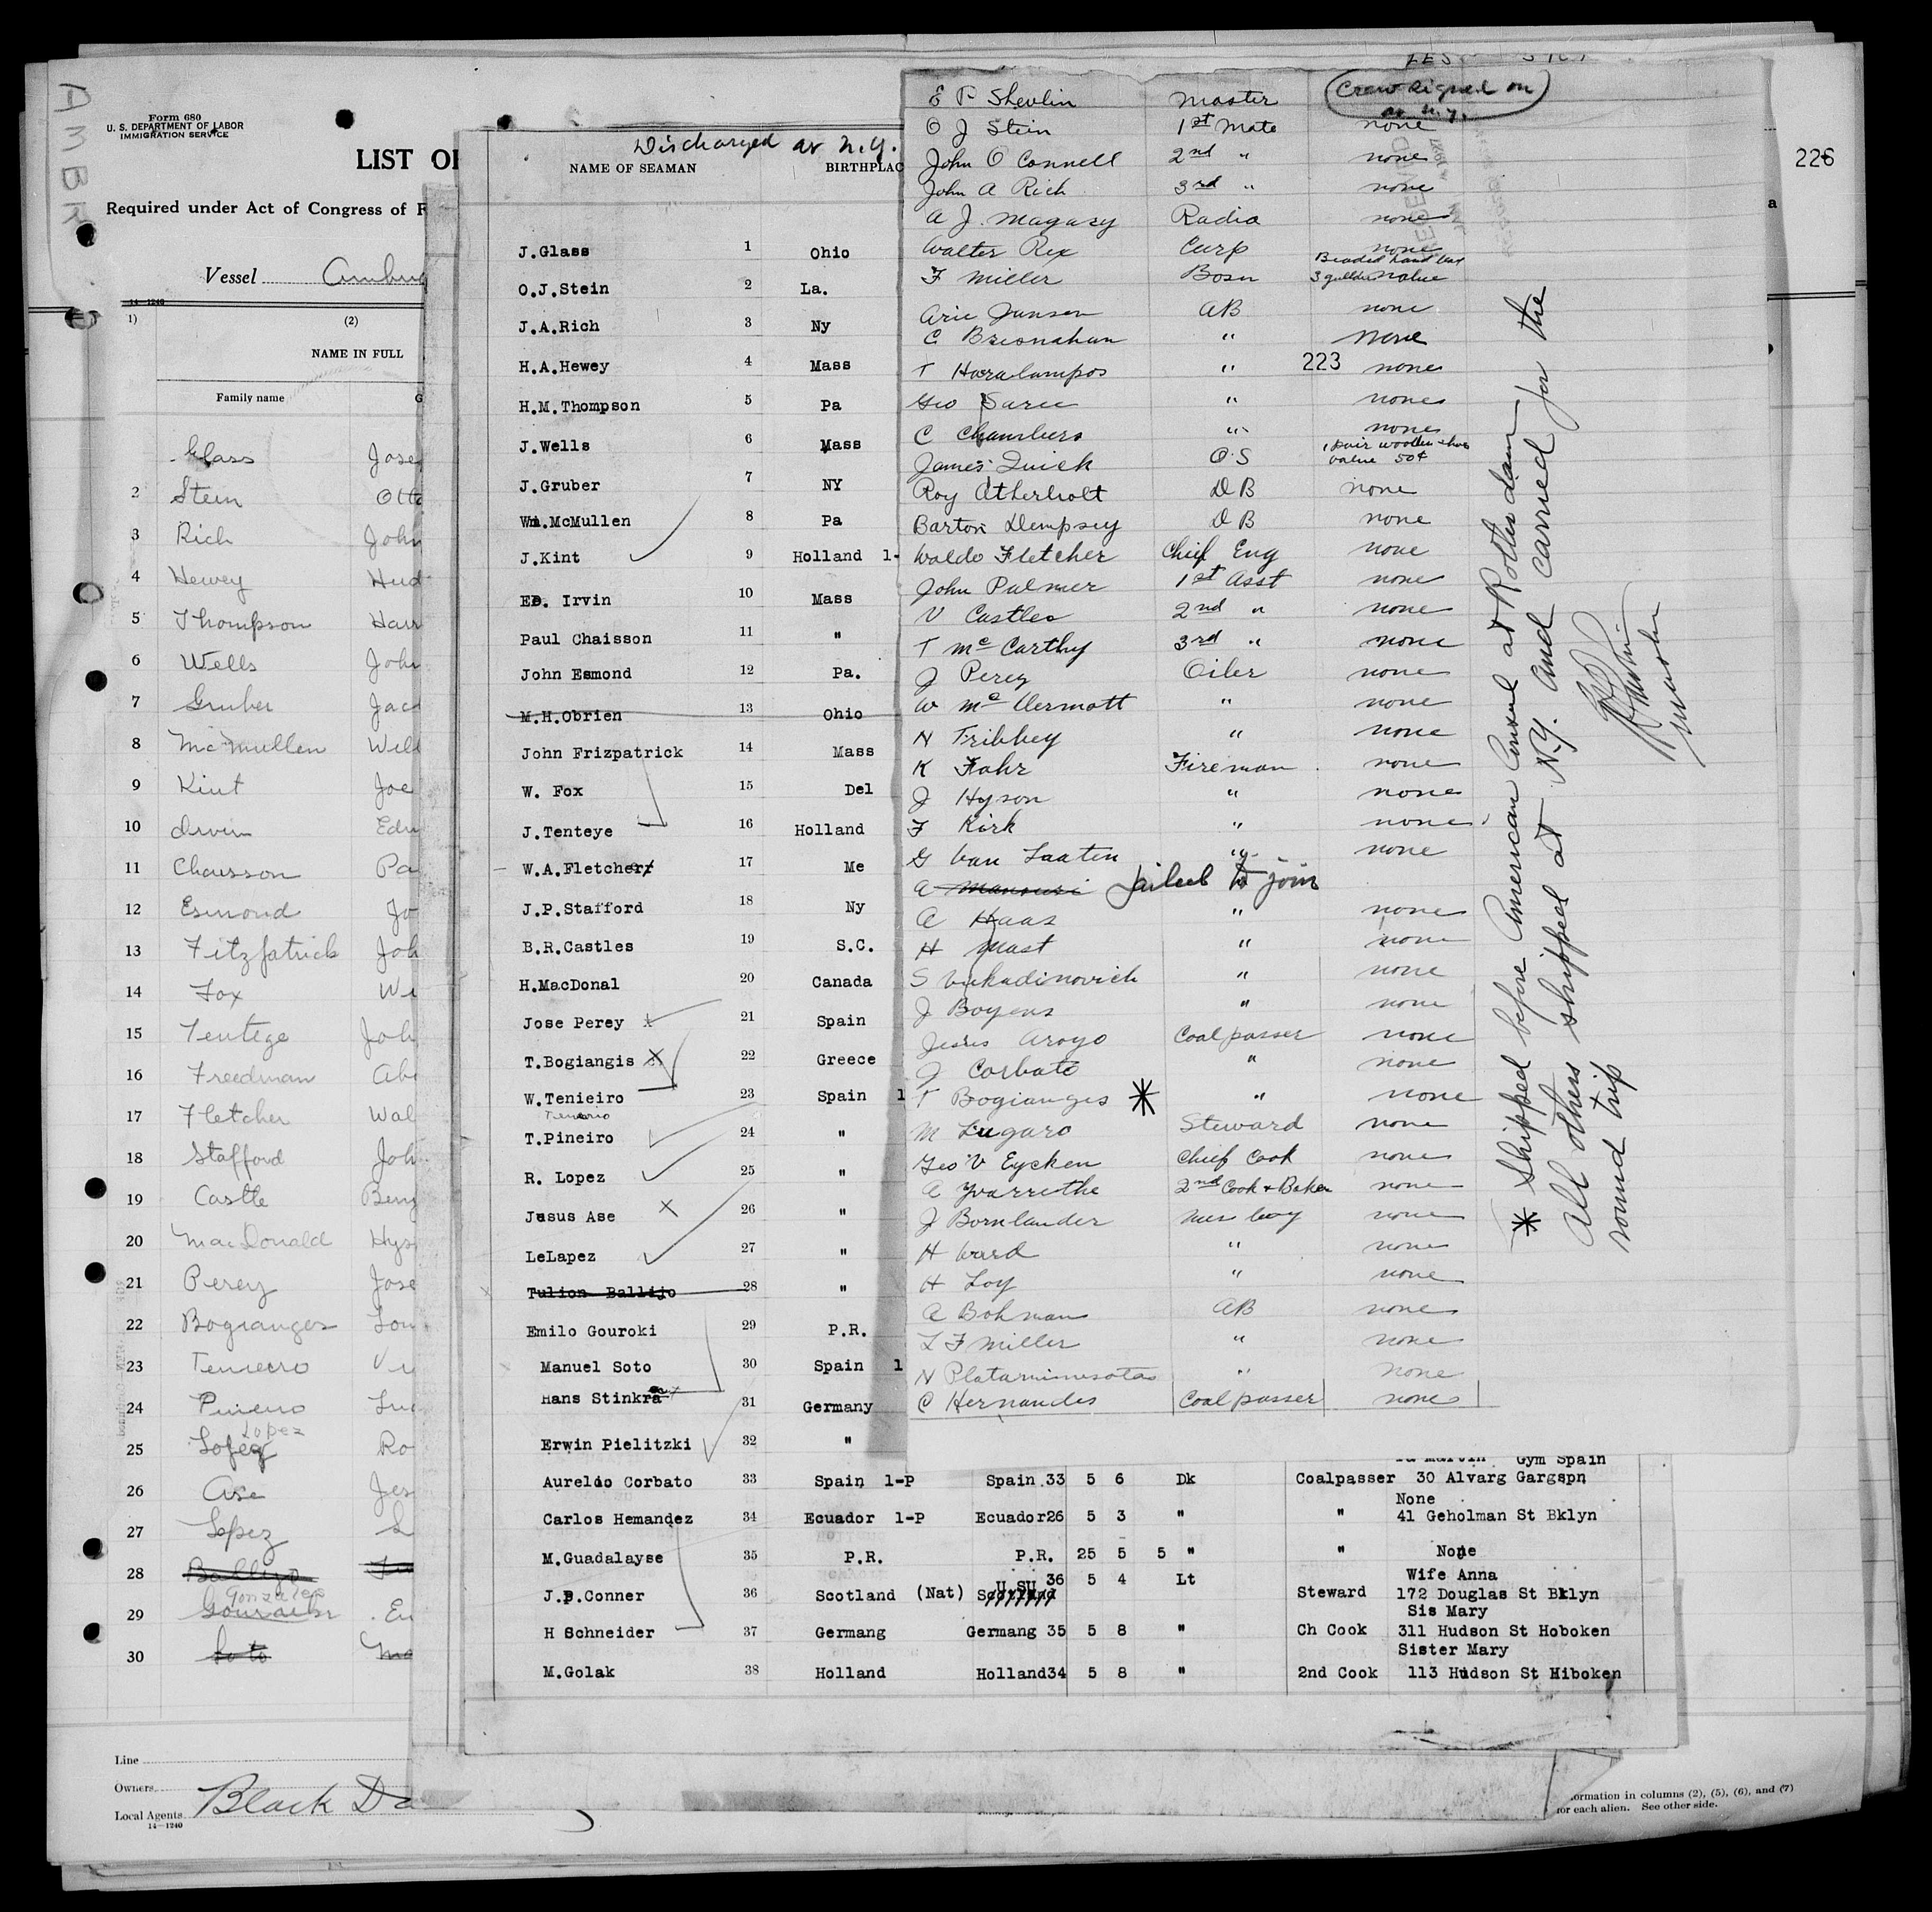 AMBR
Form 680
U. S. DEPARTMENT OF LABOR
IMMIGRATION SERVICE
LIST OF
Required under Act of Congress of F
Vessel
14-1240
1) (2)
NAME IN FULL
Family name G
Glass Jose
2 Stein Otto
3 Rich John
4 Hewey Hud
5 Thompson Harr
6 Wells John
7 Gruber Jaco
8 McMullen Will
9 Kint Joe
10 Irvin Edw
11 Chausson Pa
12 Esmond Jo
13 Fitzpatrick Joh
14 Fox Wi
15 Tentege Joh
16 Freedman Abr
17 Fletcher Wal
18 Stafford Joh
19 Castle Benj
20 MacDonald Hys
21 Perey Jose
22 Bogianges Lou
23 Teneiro Vi
24 Pineiro Lui
Lopez
25 Lopez Ro
26 Ase Jes
27 Lopez L
28 Ballijo
Gonzales
29 Em
30 Soto Ma
Line
Owners
Local Agents Black Da
14-1240
Discharged at N.Y.
NAME OF SEAMAN BIRTHPLAC
J.Glass 1 Ohio
O.J.Stein 2 La.
J.A.Rich 3 Ny
H.A.Hewey 4 Mass
H.M.Thompson 5 Pa
J.Wells 6 Mass
J.Gruber 7 NY
Wm.McMullen 8 Pa
J.Kint 9 Holland 1-
ED. Irvin 10 Mass
Paul Chaisson 11 "
John Esmond 12 Pa.
M.H.Obrien 13 Ohio
John Frizpatrick 14 Mass
W. Fox 15 Del
J.Tenteye 16 Holland
W.A.Fletcher 17 Me
J.P.Stafford 18 Ny
B.R.Castles 19 S.C.
H.MacDonal 20 Canada
Jose Perey x 21 Spain
T.Bogiangis x 22 Greece
W.Tenieiro 23 Spain 1
Tenerio
T.Pineiro 24 "
R. Lopez 25 "
Jusus Ase x 26 "
LeLapez 27 "
Tulion Ballijo 28 "
Emilo Gouroki 29 P.R.
Manuel Soto 30 Spain 1
Hans Stinkra 31 Germany
Erwin Pielitzki 32 "
Gym Spain
Aureldo Corbato 33 Spain 1-P Spain 33 5 6 Dk Coalpasser 30 Alvarg Gargspn
None
Carlos Hemandez 34 Ecuador 1-P Ecuador26 5 3 " " 41 Geholman St Bklyn
M.Guadalayse 35 P.R. P.R. 25 5 5 " " None
Wife Anna
J.P.Conner 36 Scotland (Nat) Scotland U.SU 36 5 4 Lt Steward 172 Douglas St Bklyn
Sis Mary
H Schneider 37 Germang Germang 35 5 8 " Ch Cook 311 Hudson St Hoboken
Sister Mary
M.Golak 38 Holland Holland34 5 8 " 2nd Cook 113 Hudson St Hiboken
E P Shevlin Master (Crew signed on at N.Y.)
O J Stein 1st Mate none
John O Connell 2nd " none
John A Rich 3rd " none
A J. Magasy Radio none
Walter Rex Carp none
F Miller Bosn Beaded hand bag 3 gulden value
Arie Jansen AB none
C Bresnahan " none
T Haralampos " 223 none
Geo Saree " none
C Chambers " none
James Quick OS 1 pair wooden shoes value 50¢
Roy Atherholt DB none
Barton Dempsey DB none
Waldo Fletcher Chief Eng none
John Palmer 1st Asst none
V Castles 2nd " none
T McCarthy 3rd " none
J Perey Oiler none
W McDermott " none
N Tribbey " none
K Fahr Fireman none
J Hyson " none
F Kirk " none
G Van Laaten " none
A Mansuri failed to join
A Haas " none
H Mast " none
S Vukadinovich " none
J Boyens " none
Jesus Aroyo Coal passer none
J Corbato " none
T Bogianges * " none
M Lugaro Steward none
Geo V Eycken Chief Cook none
A Yvarrethe 2nd Cook + Baker none
J Bornlander Mess boy none
H Ward " none
H Loy " none
A Bohman AB none
L F Miller " none
N Plataniniesotas " none
C Hernandes Coal passer none
* Shipped before American Consul at Rotterdam
All others shipped at N.Y. and carried for the
round trip
E P Shevlin
Master
RECEIVED
226
a
formation in columns (2), (5), (6), and (7)
for each alien. See other side.